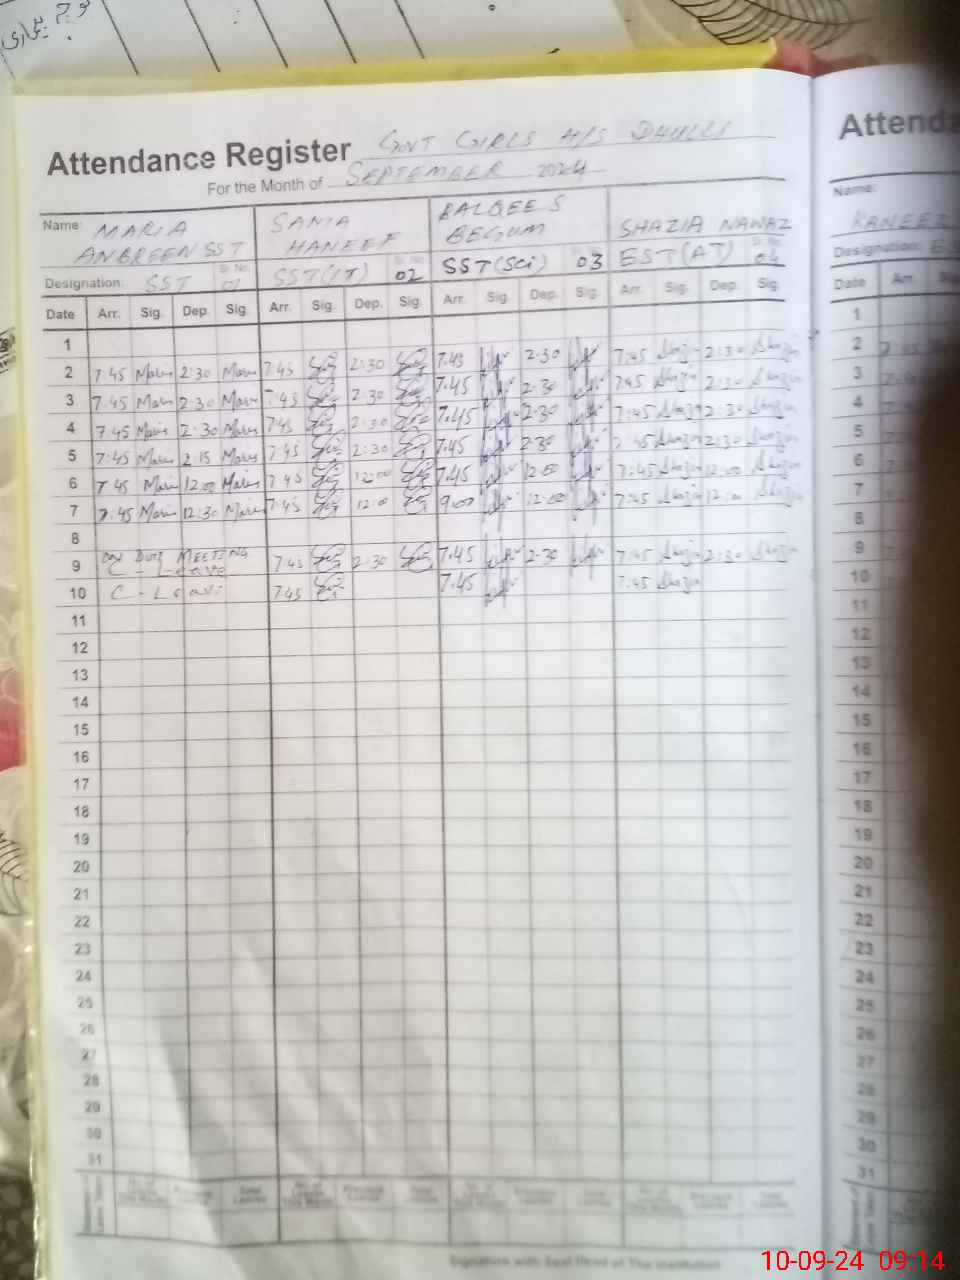 Attendance Register GOVT GIRLS H/S DHULLI
For the Month of SEPTEMBER 2024
Name: MARIA ANBREEN SST SANIA HANEEF BALQEES BEGUM SHAZIA NAWAZ
Designation: SST Sr. No. 01 SST(IT) 02 SST(Sci) 03 EST(AT) 04
Date Arr. Sig. Dep. Sig. Arr. Sig. Dep. Sig. Arr. Sig. Dep. Sig. Arr. Sig. Dep. Sig.
1
2 7:45 Maria 2:30 Maria 7:45 2:30 7.45 2.30 7:45 Shazia 2:30 Shazia
3 7:45 Maria 2:30 Maria 7:45 2:30 7.45 2.30 7:45 Shazia 2:30 Shazia
4 7:45 Maria 2:30 Maria 7:45 2:30 7.45 2.30 7:45 Shazia 2:30 Shazia
5 7:45 Maria 2:15 Maria 7:45 2:30 7.45 2.30 7:45 Shazia 2:30 Shazia
6 7:45 Maria 12:00 Maria 7:45 12:00 7.45 12:00 7:45 Shazia 12:00 Shazia
7 7:45 Maria 12:30 Maria 7:45 12:00 9:00 12:00 7:45 Shazia 12:00 Shazia
8
9 ON DUTY MEETING C - Leave 7:45 2:30 7.45 2.30 7:45 Shazia 2:30 Shazia
10 C - Leave 7:45 7.45 7:45 Shazia
11
12
13
14
15
16
17
18
19
20
21
22
23
24
25
26
27
28
29
30
31
Signature with Seal Head of The Institution
Name: KANEEZ
Designation:
Date Arr.
1
2
3
4
5
6
7
8
9
10
11
12
13
14
15
16
17
18
19
20
21
22
23
24
25
26
27
28
29
30
31
10-09-24 09:14